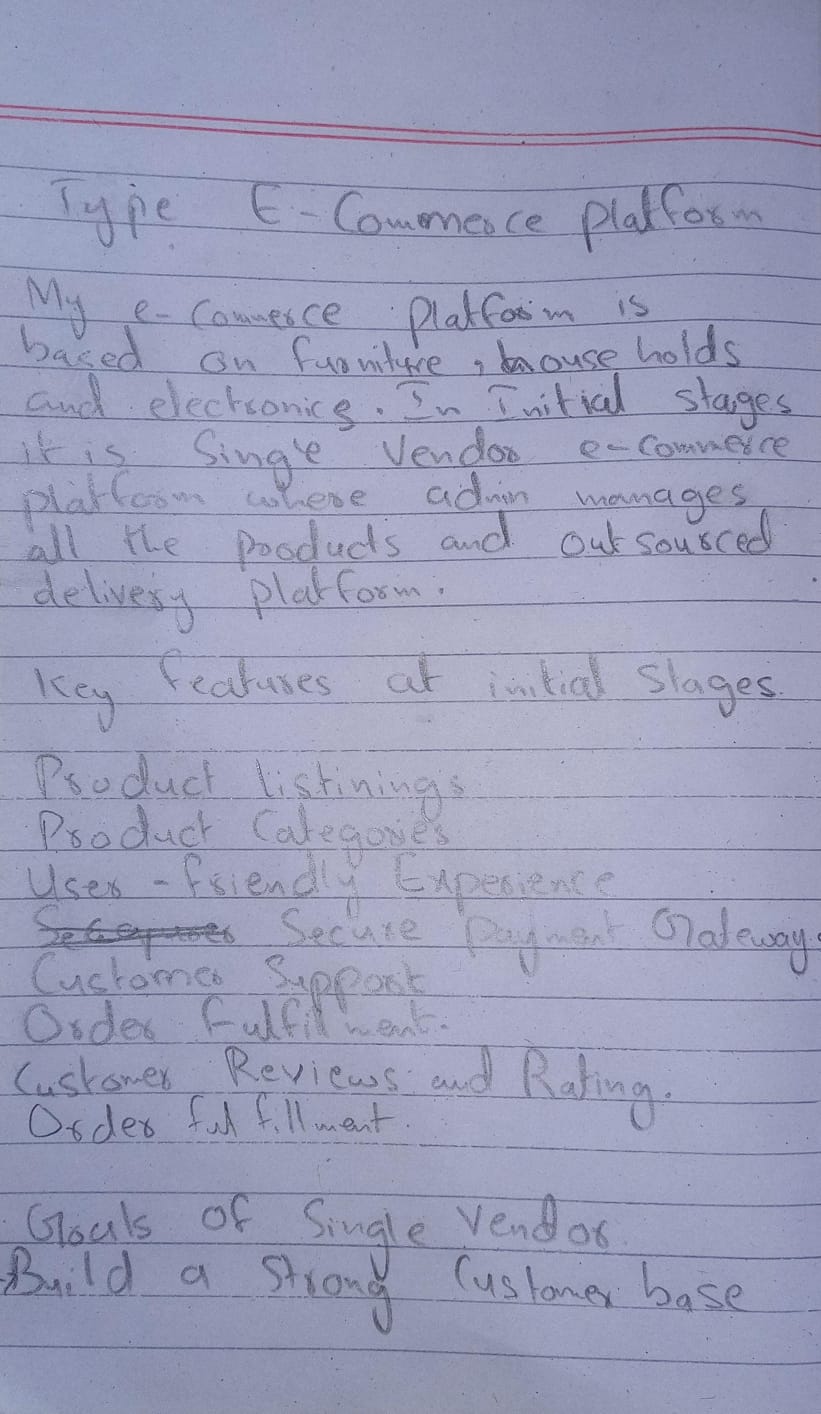 Type E-Commerce platform
My e-commerce platform is
based on furniture, households
and electronics. In Initial stages
it is Single Vendor e-commerce
platform where admin manages
all the products and outsourced
delivery platform.
Key features at initial stages
Product listinings
Product Categories
User-friendly Experience
Secure payment Gateway
Customer Support
Order fulfillment.
Customer Reviews and Rating.
Order fulfillment.
Goals of Single Vendor.
Build a strong Customer base